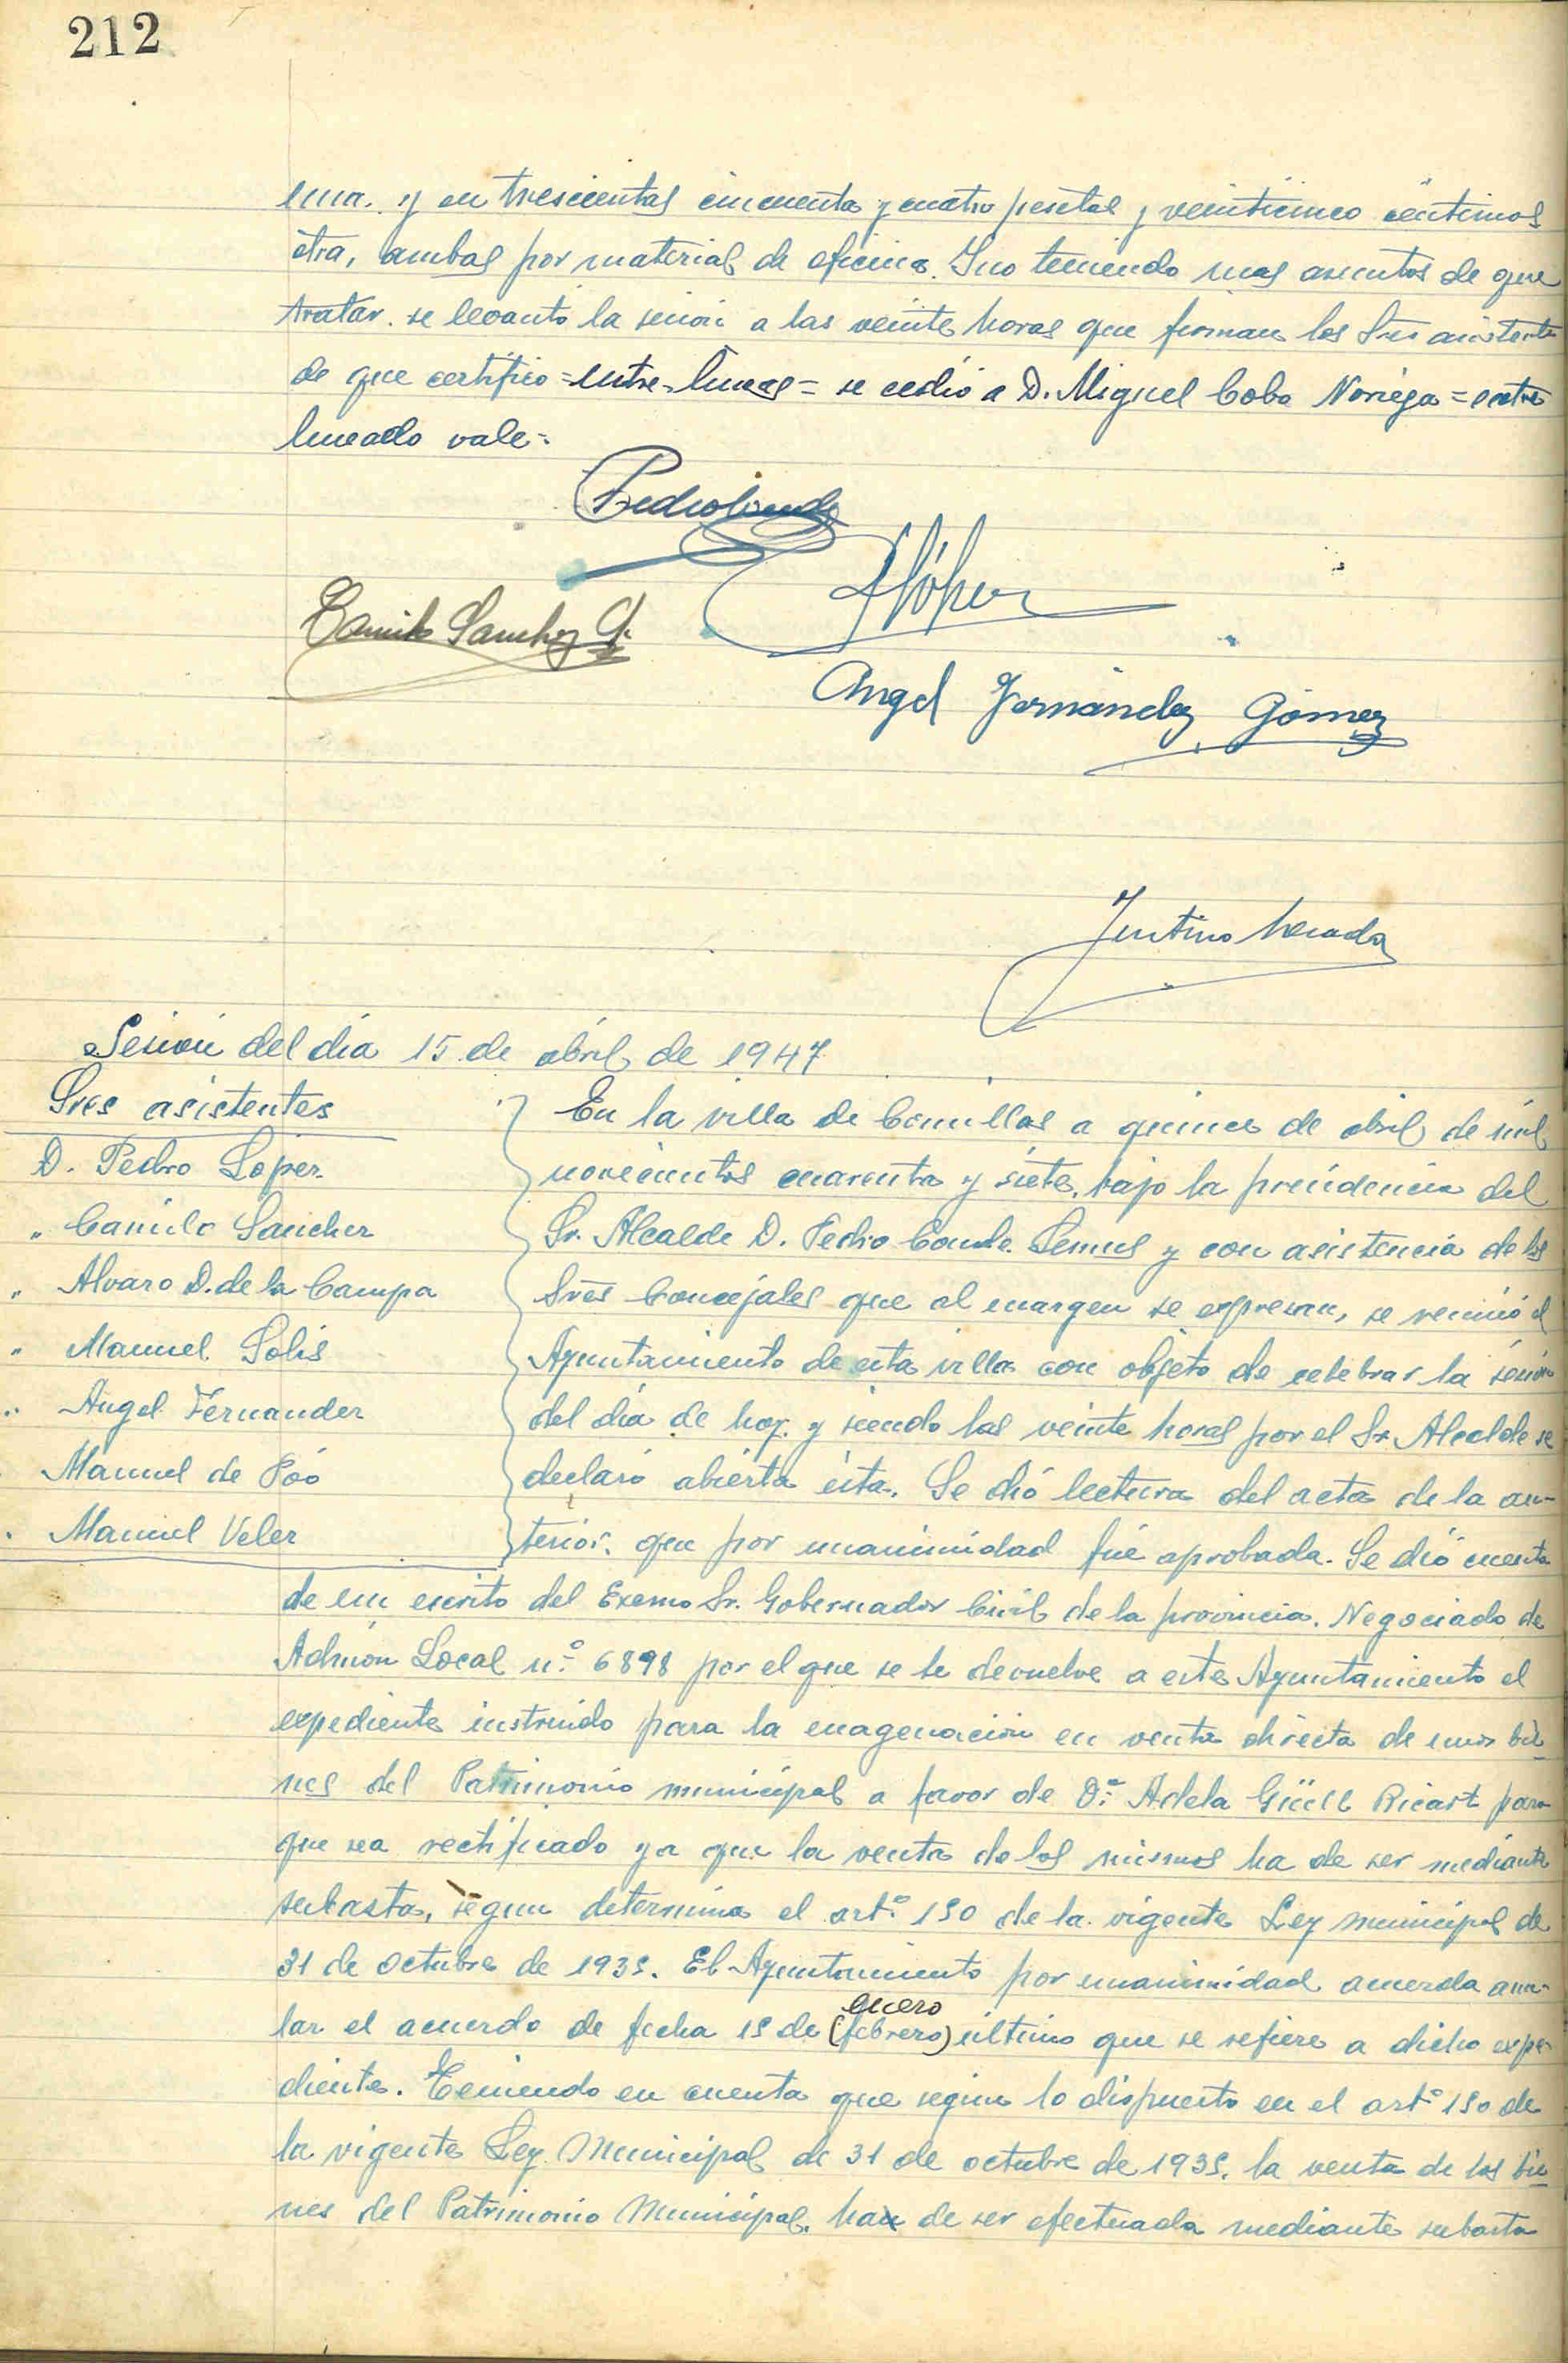 212
una. y en trescientas cincuenta y cuatro pesetas y veinticinco céntimos
otra, ambas por material de oficina. Y no teniendo mas asuntos de que
tratar. se levantó la sesión a las veinte horas que firman los Sres asistentes
de que certifico = entre-lineas = se cedió a D. Miguel Cobo Noriega = entre
lineado vale =
Pedro Conde
PLópez
Camilo Sanchez G.
Angel Fernández Gómez
Sesión del día 15 de abril de 1947
Sres asistentes
D. Pedro Lopez
" Camilo Sanchez
" Alvaro D. de la Campa
" Manuel Solis
" Angel Fernandez
Manuel de Póo
" Manuel Velez
En la villa de Comillas a quince de abril de mil
novecientos cuarenta y siete, bajo la presidencia del
Sr. Alcalde D. Pedro Conde Lemus y con asistencia de los
Sres Concejales que al margen se expresan, se reunió el
Ayuntamiento de esta villa con objeto de celebrar la sesión
del día de hoy. y siendo las veinte horas por el Sr. Alcalde se
declaró abierta ésta. Se dió lectura del acta de la an-
terior. que por unanimidad fué aprobada. Se dió cuenta
de un escrito del Excmo Sr. Gobernador Civil de la provincia. Negociado de
Admón Local n.º 6898 por el que se le devuelve a este Ayuntamiento el
expediente instruido para la enagenación en venta directa de unos bie-
nes del Patrimonio municipal a favor de D.ª Adela Güell Ricart para
que sea rectificado ya que la venta de los mismos ha de ser mediante
subasta, según determina el art.º 150 de la vigente Ley municipal de
31 de Octubre de 1935. El Ayuntamiento por unanimidad acuerda anu-
enero
lar el acuerdo de fecha 15 de (febrero) último que se refiere a dicho expe-
diente. Teniendo en cuenta que según lo dispuesto en el artº 150 de
la vigente Ley Municipal de 31 de octubre de 1935. la venta de los bie
nes del Patrimonio Municipal. han de ser efectuada mediante subasta